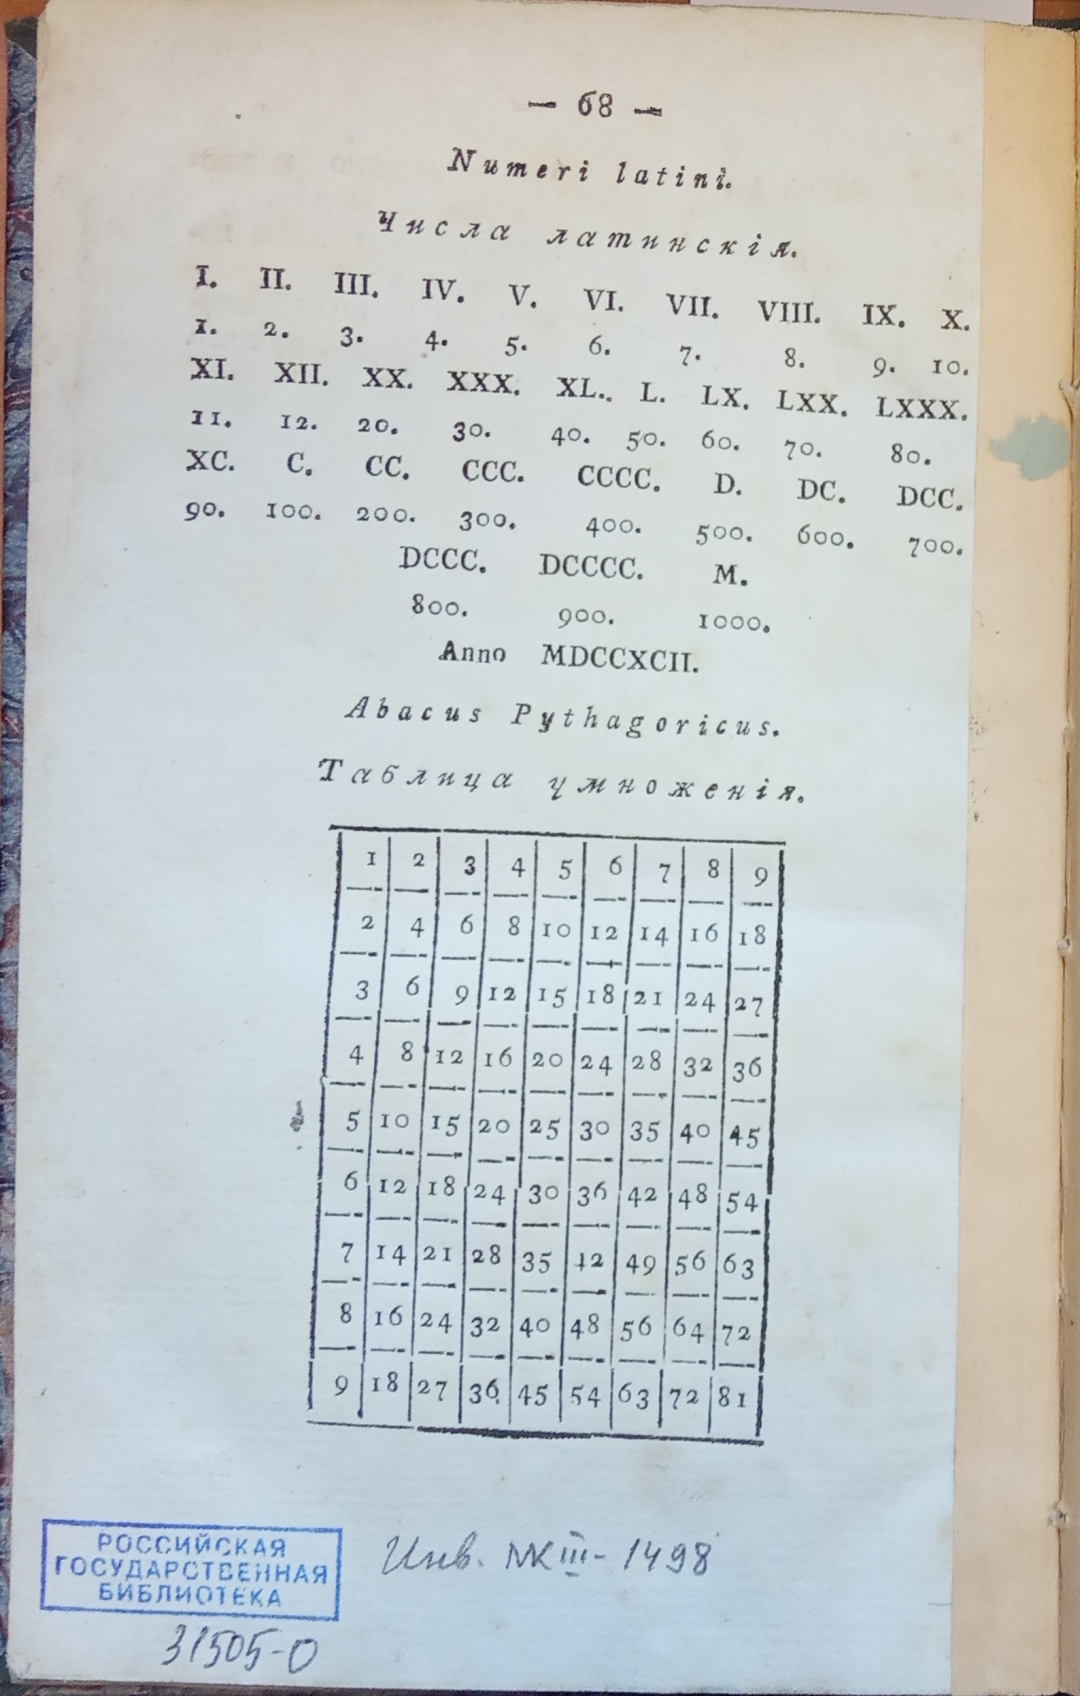 — 68 —
Numeri latini.
Числа латинскія.
I. II. III. IV. V. VI. VII. VIII. IX. X.
1. 2. 3. 4. 5. 6. 7. 8. 9. 10.
XI. XII. XX. XXX. XL.. L. LX. LXX. LXXX.
11. 12. 20. 30. 40. 50. 60. 70. 80.
XC. C. CC. CCC. CCCC. D. DC. DCC.
90. 100. 200. 300. 400. 500. 600. 700.
DCCC. DCCCC. M.
800. 900. 1000.
Anno MDCCXCII.
Abacus Pythagoricus.
Таблица умноженія.
1 2 3 4 5 6 7 8 9
2 4 6 8 10 12 14 16 18
3 6 9 12 15 18 21 24 27
4 8 12 16 20 24 28 32 36
5 10 15 20 25 30 35 40 45
6 12 18 24 30 36 42 48 54
7 14 21 28 35 42 49 56 63
8 16 24 32 40 48 56 64 72
9 18 27 36 45 54 63 72 81
РОССИЙСКАЯ
ГОСУДАРСТВЕННАЯ
БИБЛИОТЕКА
Инв. МК III-1498
31505-О